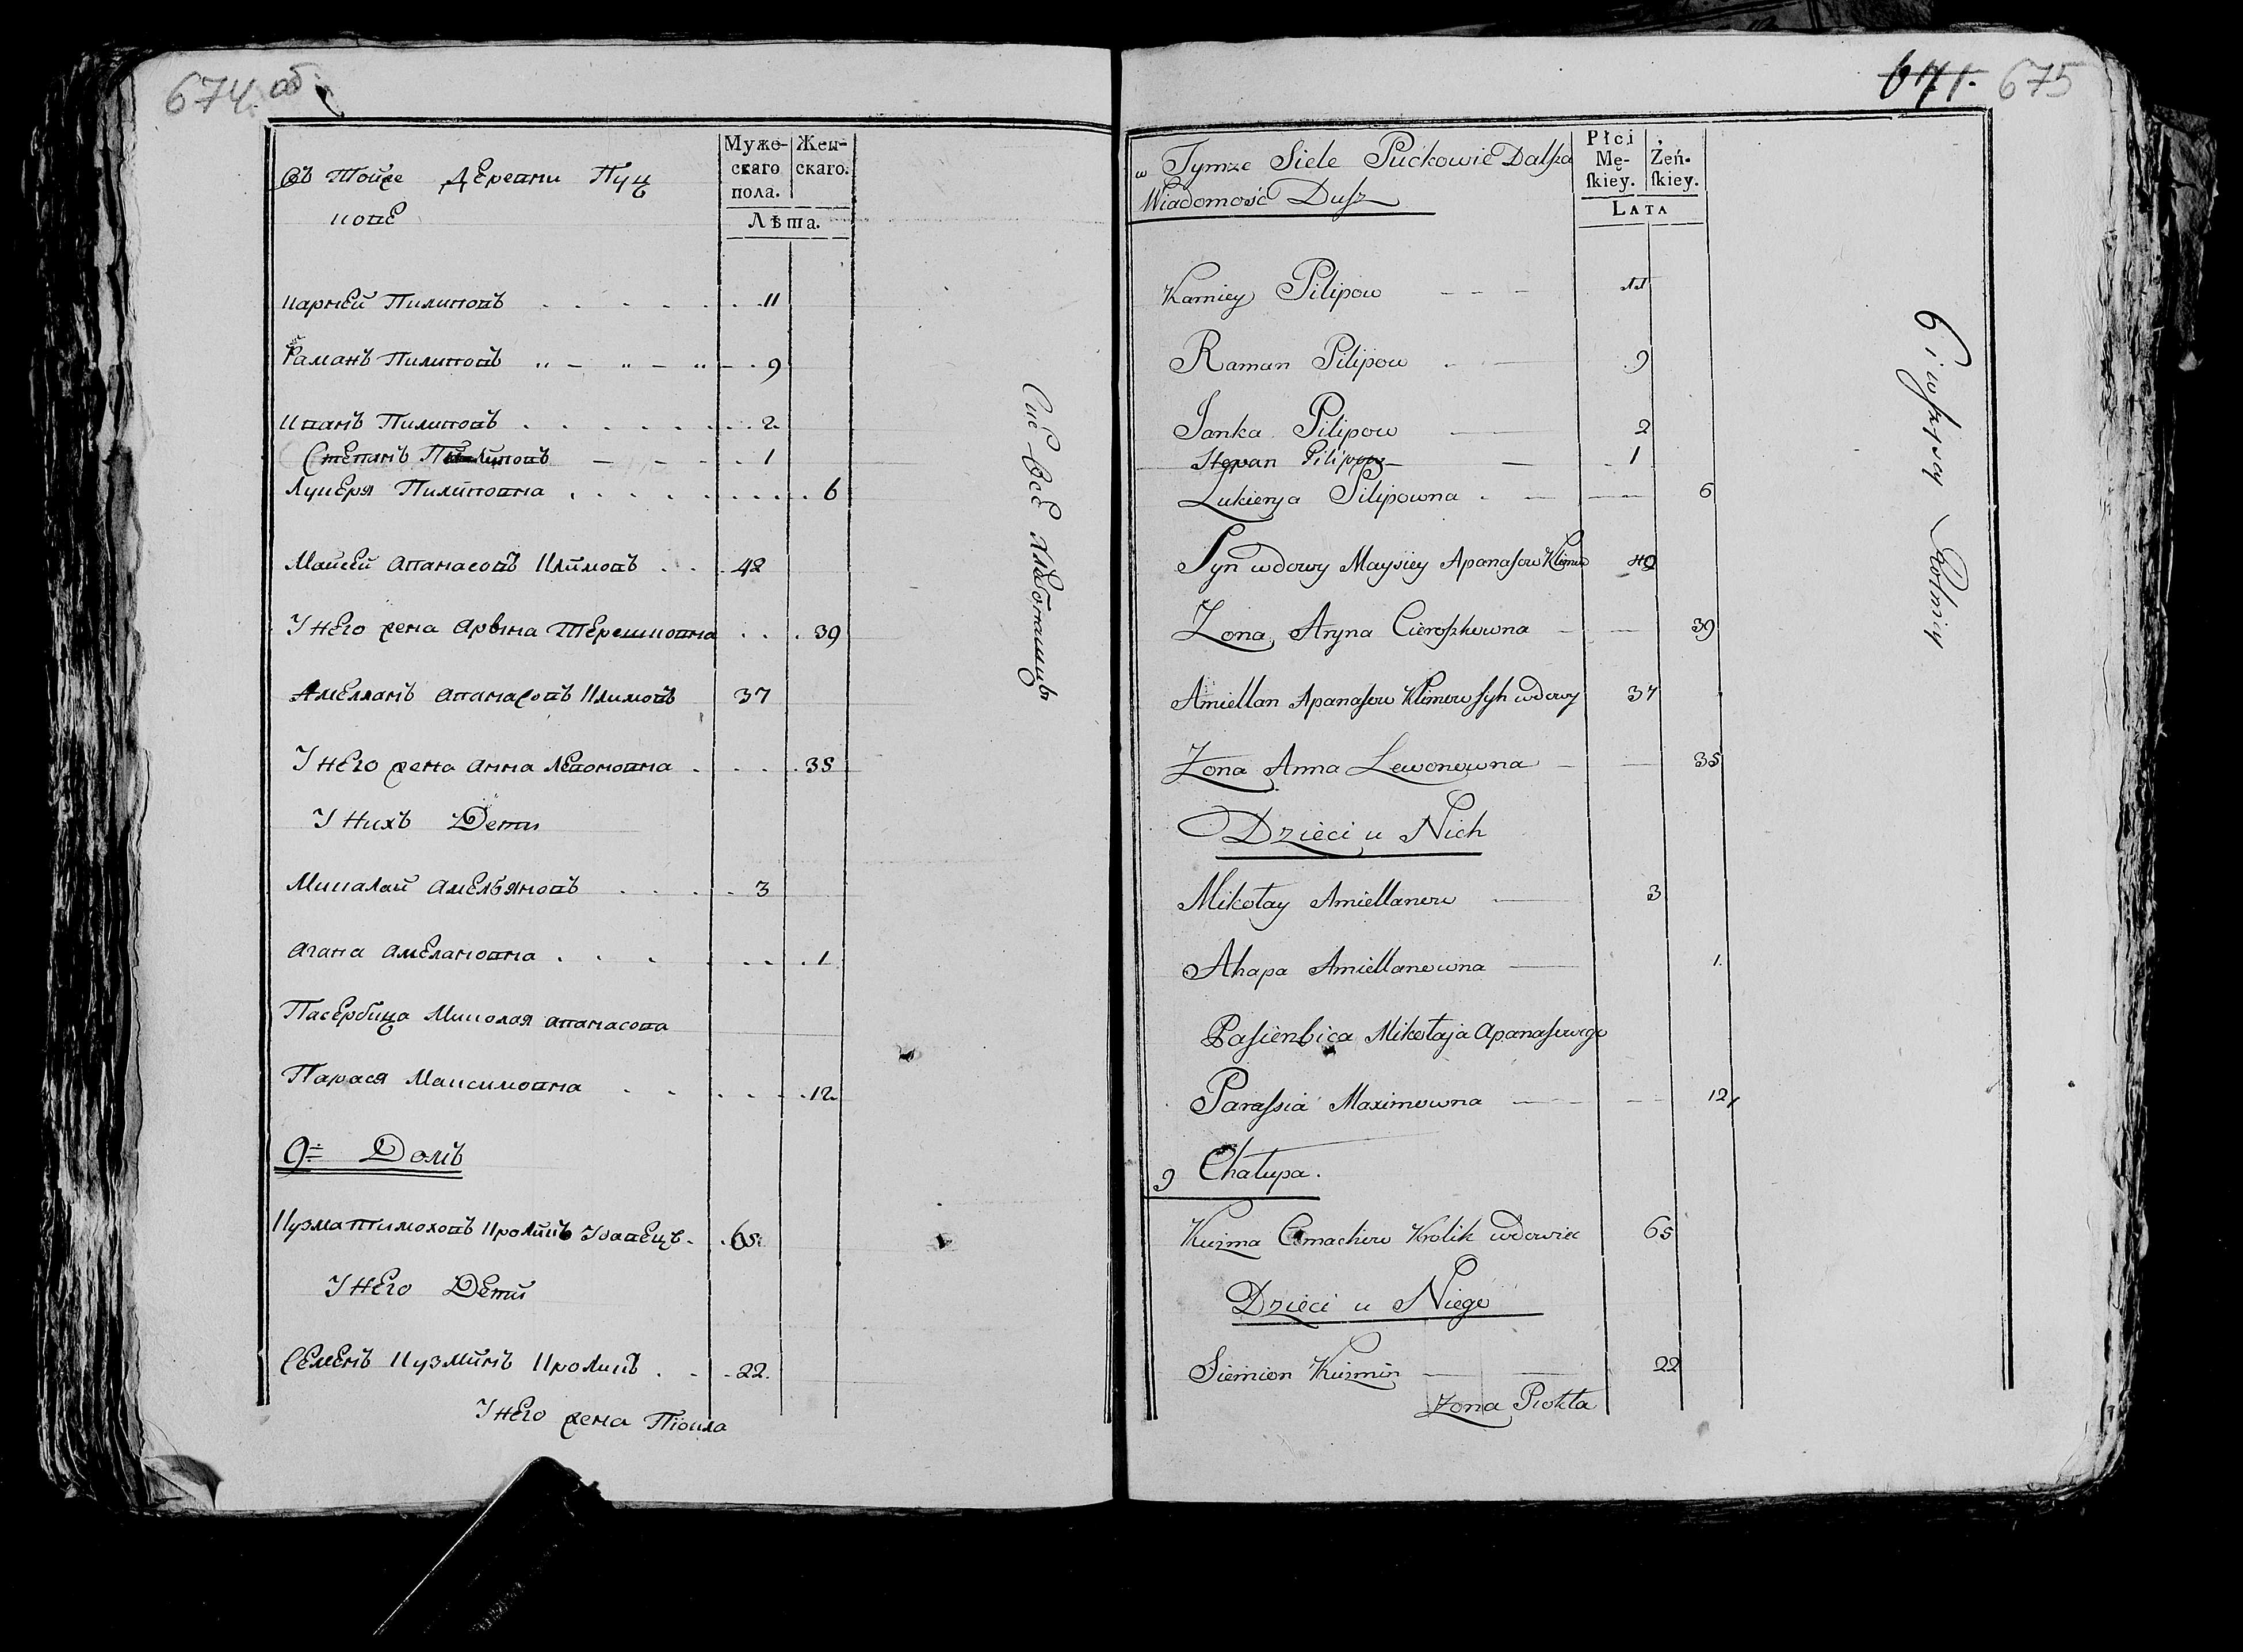 674. об
Въ Тойже Деревни Пуц
кове
Муже-
скаго
пола.
Жен-
скаго.
Лѣта.
Карней Пилиповъ 11
Раманъ Пилиповъ 9
Иванъ Пилиповъ 2
Степанъ Пилиповъ 1
Лукеря Пилиповна 6
Майсей Апанасовъ Климовъ 42
У него жена Арына Терешковна 39
Амелланъ Апанасовъ Климовъ 37
У него жена Анна Левоновна 35
У Нихъ Дети
Микалай Амельяновъ 3
Агапа Амелановна 1
Пасербица Миколая Апанасова
Парася Максимовна 12
9= Домъ
Кузма Тимоховъ Кроликъ Удавецъ 65
У Него Дети
Семенъ Кузминъ Кроликъ 22
У Него жена Тюкла
Сие Все Хлебопашцы
671. 675
w Tymze Siele Puckowie Dalsza
Wiadomość Dusz
Płci
Mę-
skiey.
Żeń-
skiey.
LATA
Karniey Pilipow 11
Raman Pilipow 9
Janka Pilipow 2
Stepan Pilipow 1
Lukierya Pilipowna 6
Syn wdowy Maysiey Apanasow Klimow 42
Zona Aryna Cieroszkowna 39
Amiellan Apanasow Klimow syn wdowy 37
Zona Anna Lewonowna 35
Dzieci u Nich
Mikołay Amiellanow 3
Ahapa Amiellanowna 1
Pasierbica Mikołaja Apanasowego
Parassia Maximowna 12
9 Chałupa.
Kuzma Cimachow Krolik wdowiec 65
Dzieci u Niego
Siemion Kuzmin 22
Zona Piokła
Ci wszyscy Rolnicy